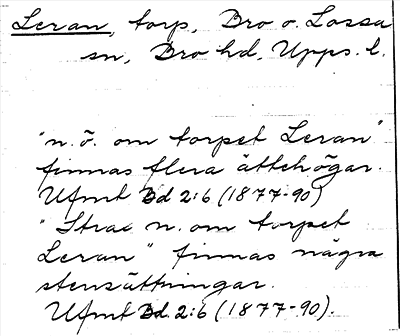 Leran, torp, Bro o. Lossa
sn, Bro hd, Upps. l.
"n.ö. om torpet Leran"
finnas flera ättehögar.
Ufmt Bd 2:6 (1877-90)
"Strax n. om torpet
Leran" finnas några
stensättningar.
Ufmt Bd. 2:6 (1877-90).